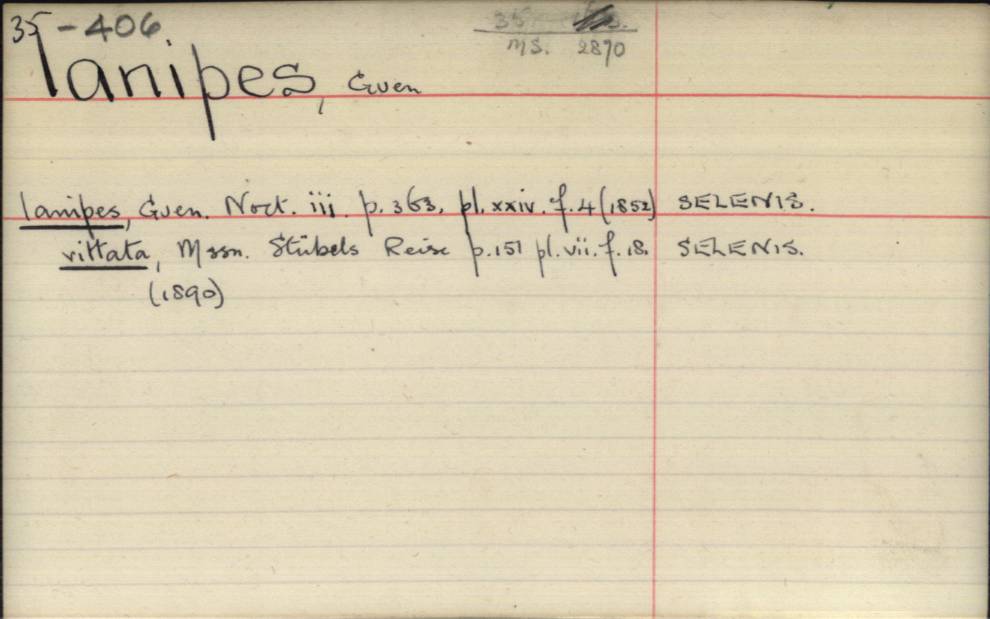 35-406.
35
MS. 2870
lanipes, Guen
lanipes, Guen. Noct. iii. p. 363, pl. xxiv. f. 4 (1852) SELENIS.
vittata, Mssn. Stübels Reise p. 151 pl. vii. f. 18. SELENIS.
(1890)